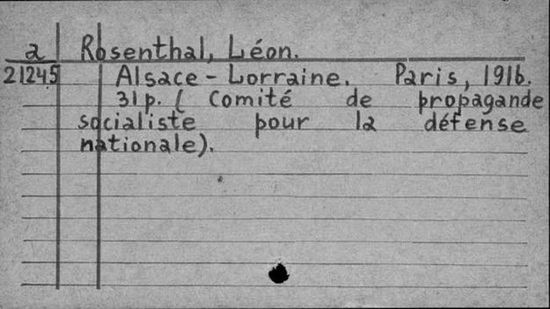 a Rosenthal, Léon.
21245 Alsace-Lorraine. Paris, 1916.
31p. ( Comité de propagande
socialiste pour la défense
nationale).